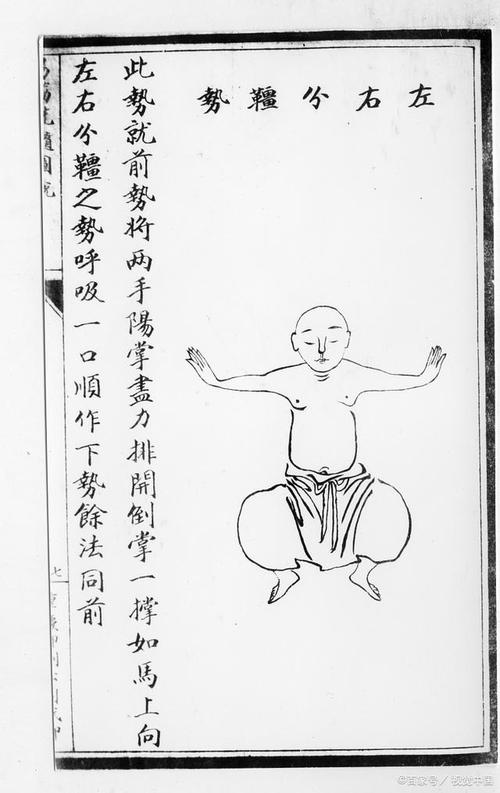 左右分韁勢
此勢就前勢将两手陽掌盡力排開倒掌一撑如馬上向
左右分韁之勢呼吸一口順作下勢餘法同前
七
©百家号／视觉中国